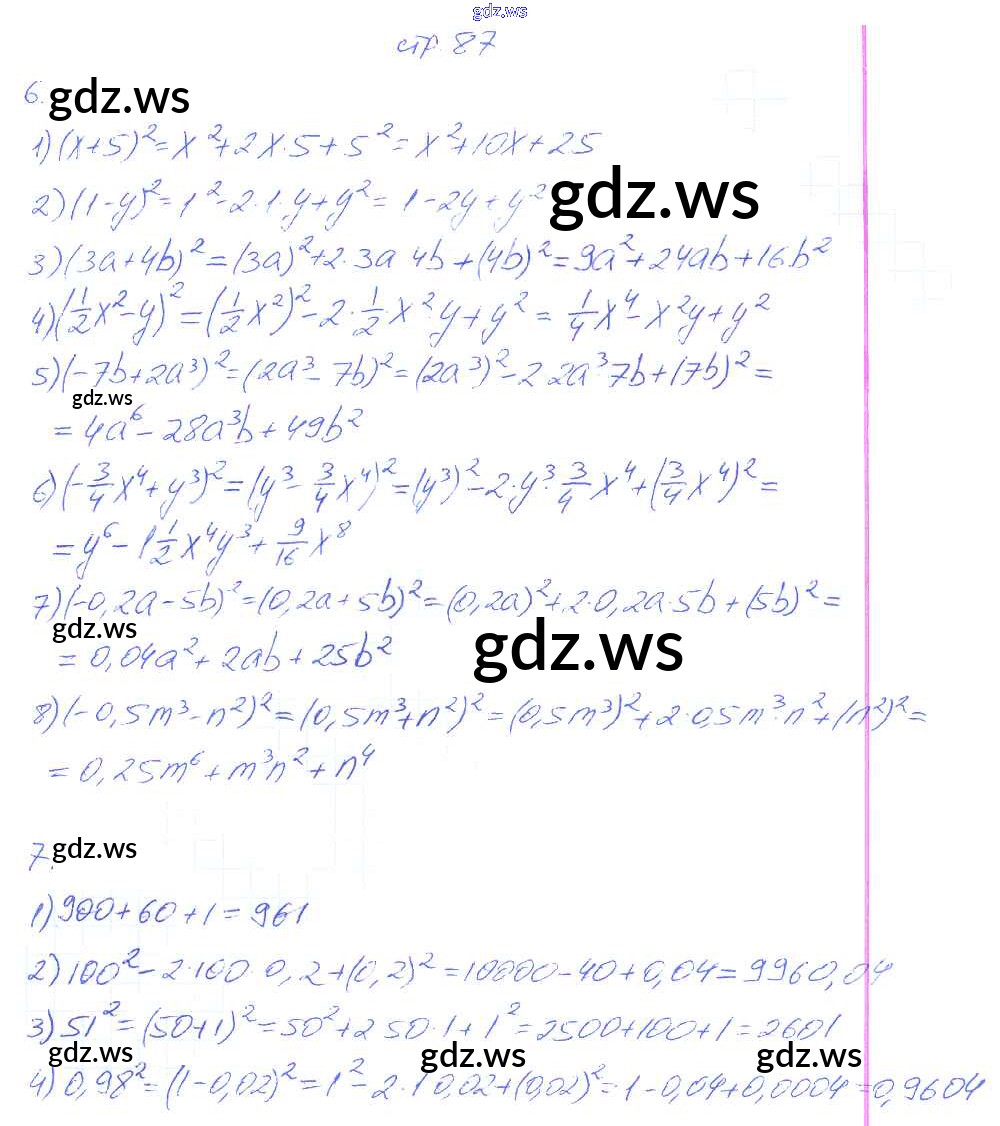 gdz.ws
стр. 87
6. gdz.ws
1) (x+5)² = x²+2x·5+5² = x²+10x+25
2) (1-y)² = 1²-2·1·y+y² = 1-2y+y² gdz.ws
3) (3a+4b)² = (3a)²+2·3a 4b+(4b)² = 9a²+24ab+16b²
4) (1/2x²-y)² = (1/2x²)²-2·1/2·x²y+y² = 1/4x⁴-x²y+y²
5) (-7b+2a³)² = (2a³-7b)² = (2a³)²-2 2a³·7b+(7b)² =
gdz.ws
= 4a⁶-28a³b+49b²
6) (-3/4x⁴+y³)² = (y³-3/4x⁴)² = (y³)²-2·y³·3/4x⁴+(3/4x⁴)² =
= y⁶-1 1/2x⁴y³+9/16x⁸
7) (-0,2a-5b)² = (0,2a+5b)² = (0,2a)²+2·0,2a·5b+(5b)² =
gdz.ws
= 0,04a²+2ab+25b² gdz.ws
8) (-0,5m³-n²)² = (0,5m³+n²)² = (0,5m³)²+2·0,5m³·n²+(n²)² =
= 0,25m⁶+m³n²+n⁴
7. gdz.ws
1) 900+60+1 = 961
2) 100²-2·100·0,2+(0,2)² = 10000-40+0,04 = 9960,04
3) 51² = (50+1)² = 50²+2 50·1+1² = 2500+100+1 = 2601
gdz.ws gdz.ws gdz.ws
4) 0,98² = (1-0,02)² = 1²-2·1 0,02+(0,02)² = 1-0,04+0,0004 = 0,9604